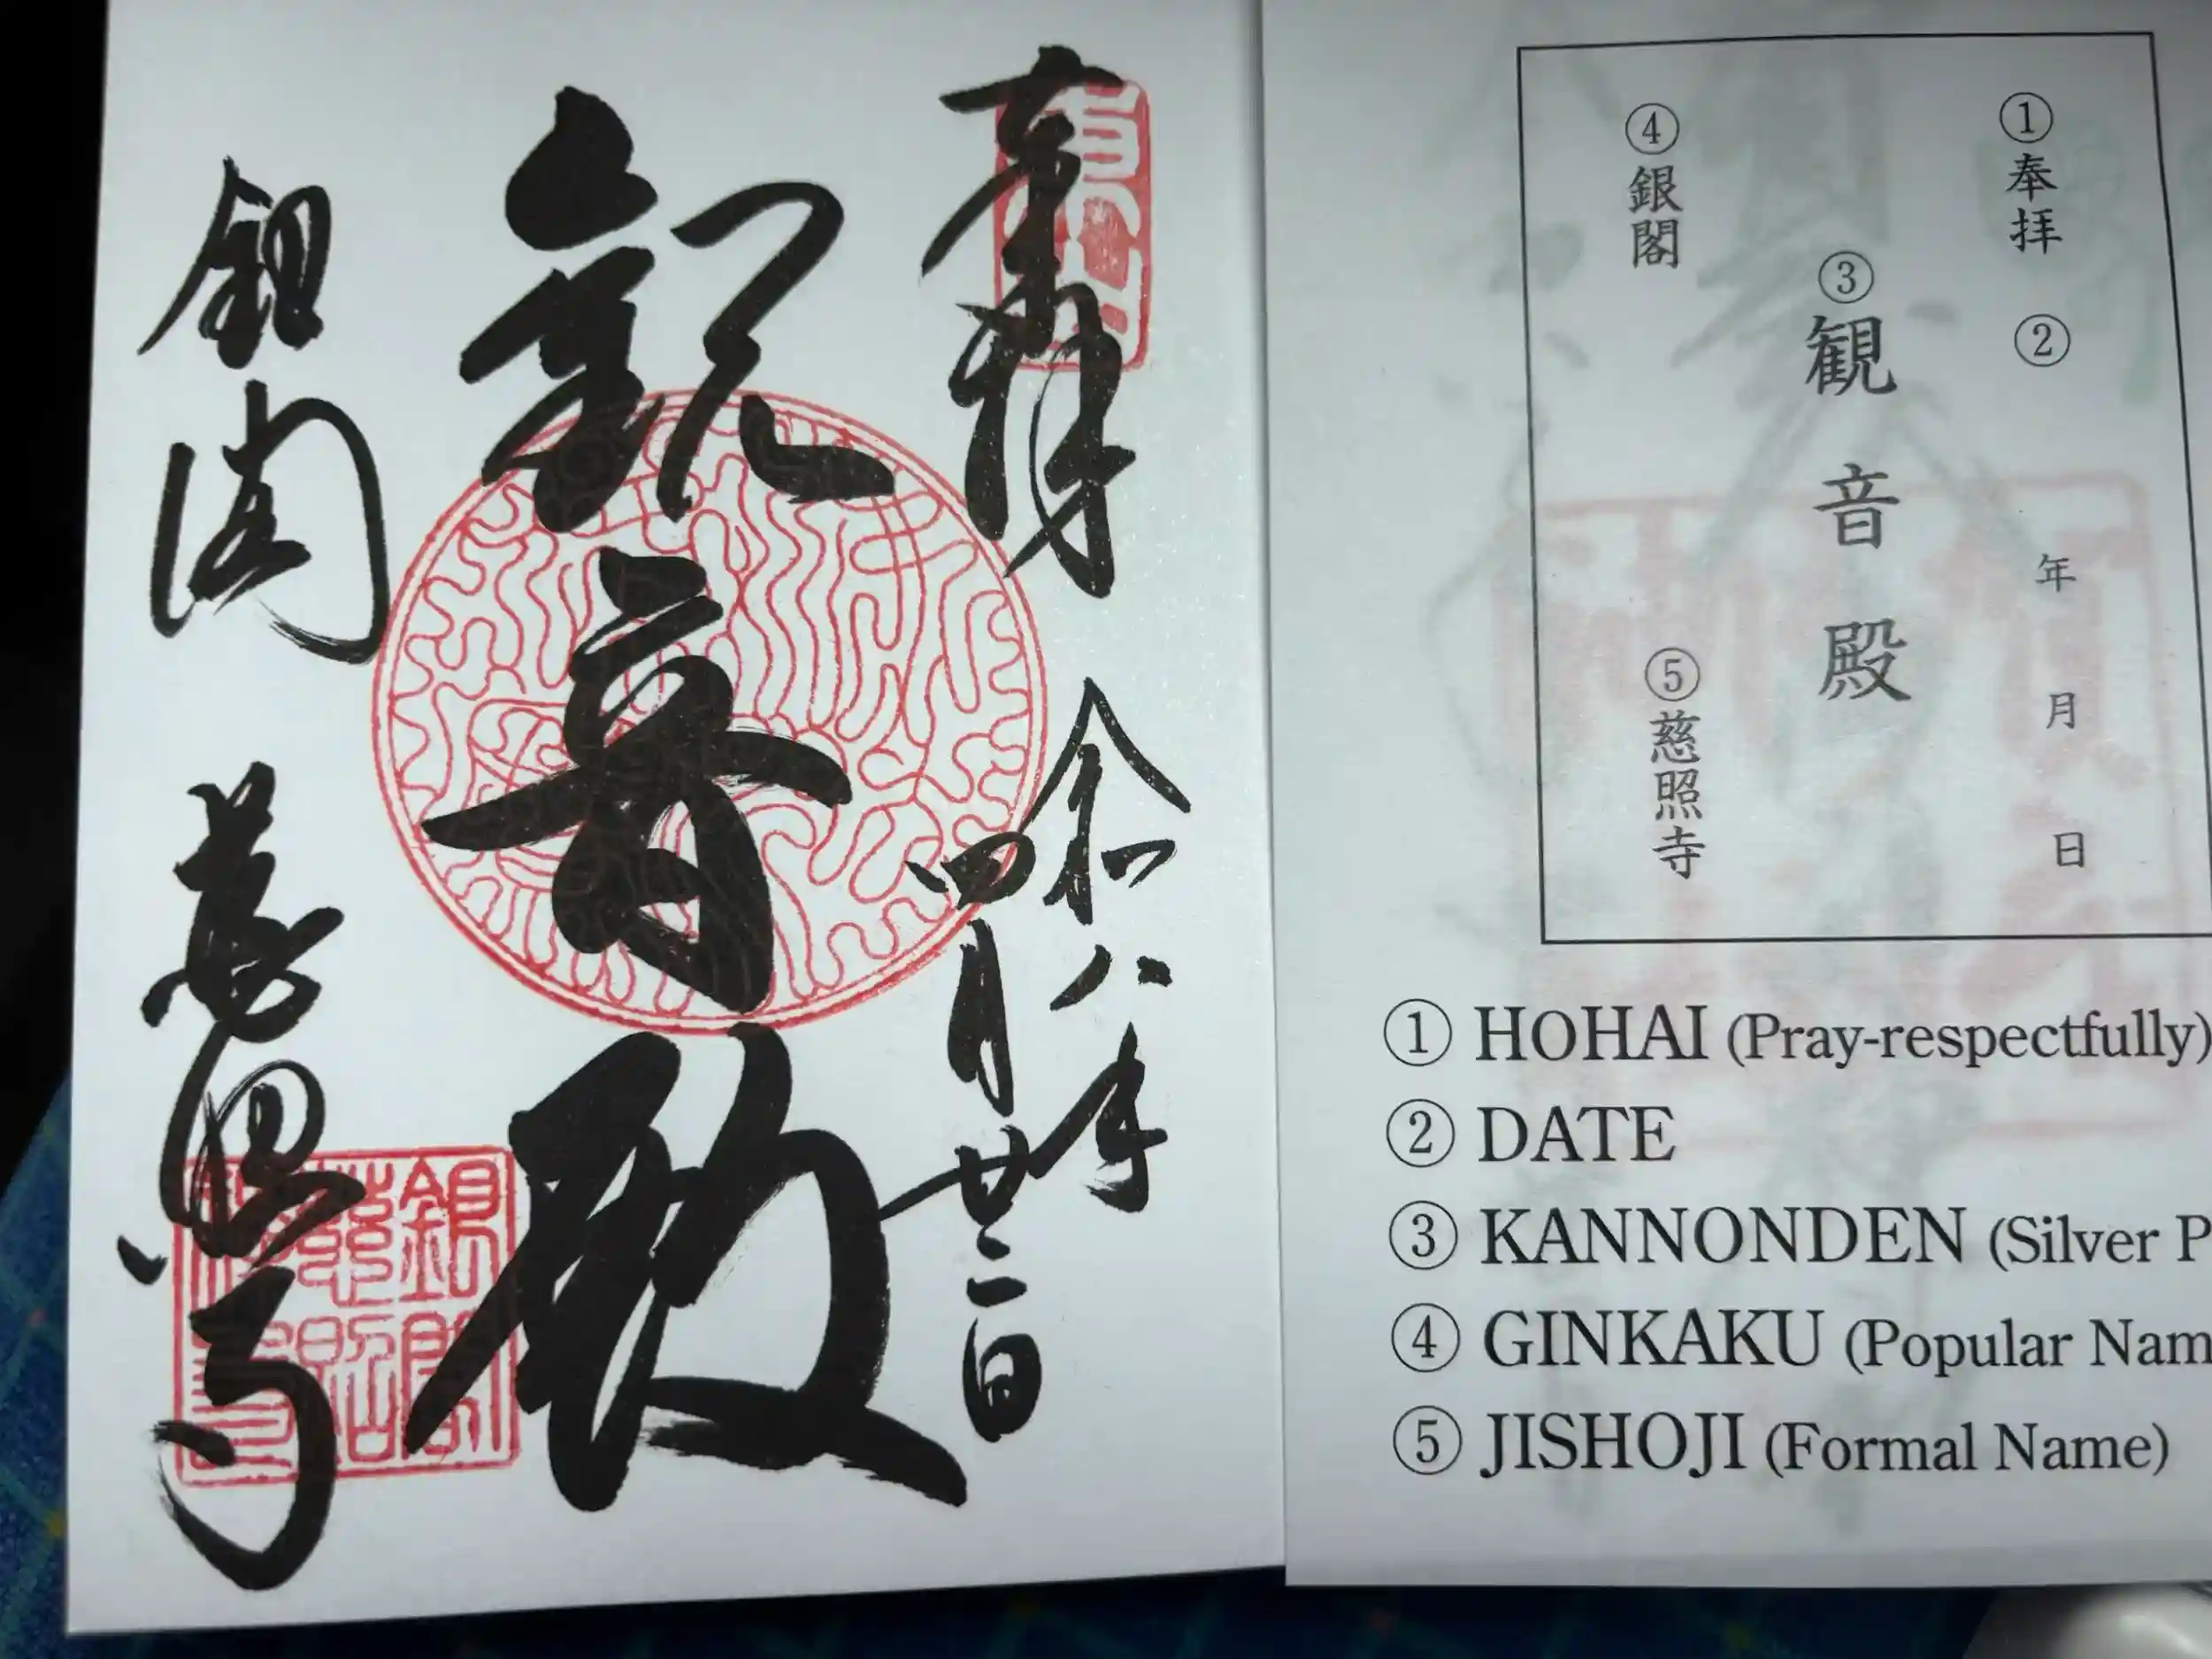 奉拝
令和八年
四月廿二日
観音殿
銀閣
慈照寺
東山
銀閣
慈照
寺
① 奉拝 ② 年 月 日
③ 観音殿
④ 銀閣
⑤ 慈照寺
① HOHAI (Pray-respectfully)
② DATE
③ KANNONDEN (Silver P
④ GINKAKU (Popular Nam
⑤ JISHOJI (Formal Name)